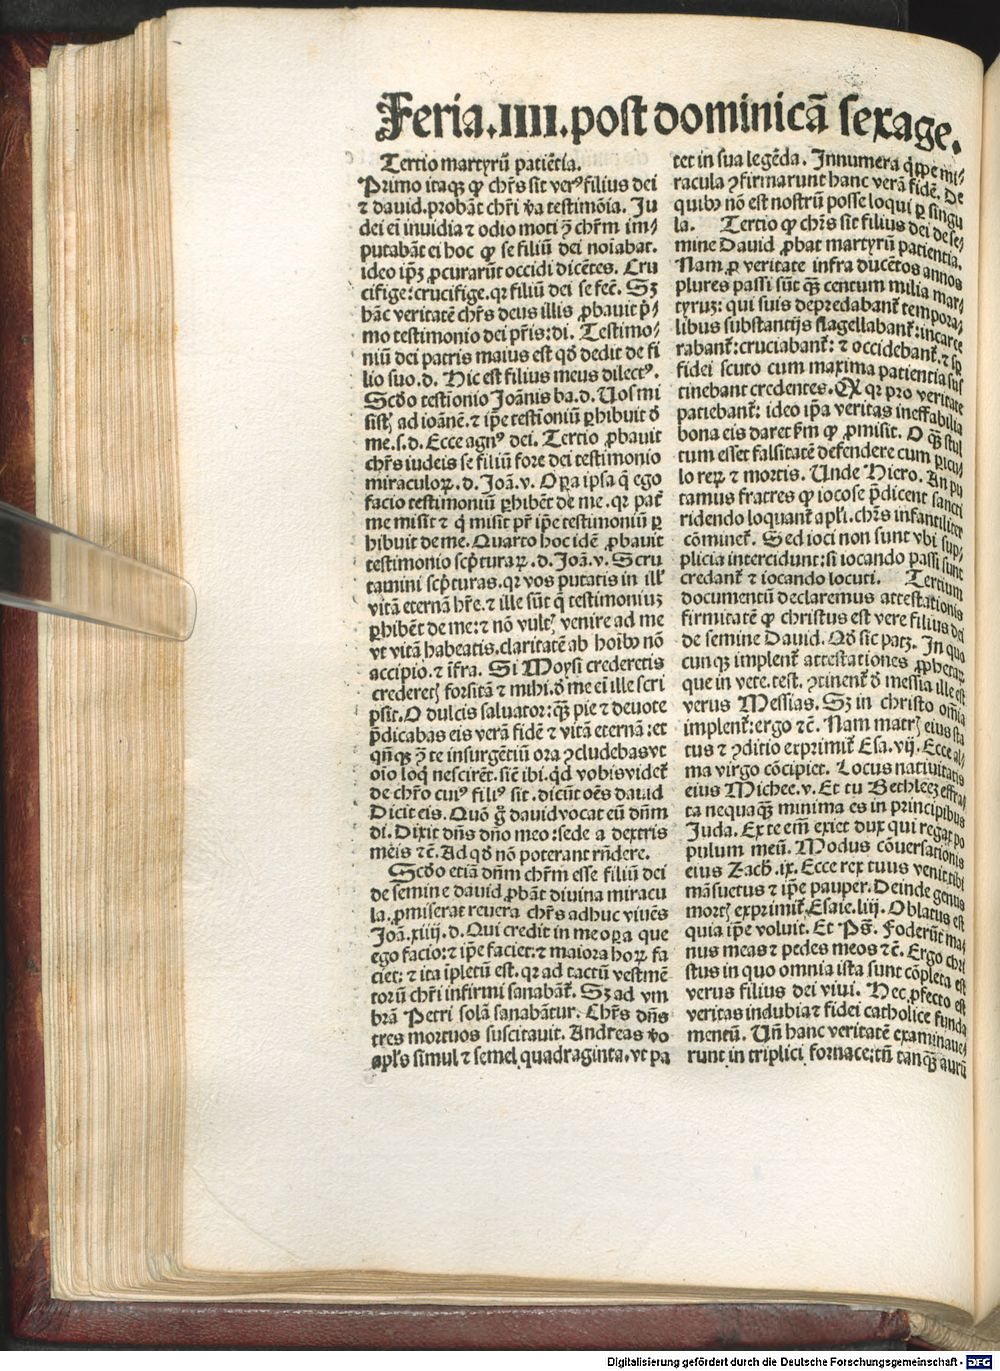 Feria.IIII.post dominicā sexage.
Tertio martyrū patiētia.
Primo itaqꝫ ꝙ chr̄s sit verꝰ filius dei
⁊ dauid.probāt chr̄i v̄a testimōia. Ju
dei ei inuidia ⁊ odio moti ꝯ̄ chr̄m im⸗
putabāt ei hoc ꝙ se filiū dei noiabat.
ideo ip̄ꝫ ꝓcurarūt occidi dicētes. Cru
cifige:crucifige.qꝛ filiū dei se fec̄. Sꝫ
hāc veritatē chr̄s deus illis ꝓbauit p̄⸗
mo testimonio dei pr̄is:di. Testimo⸗
niū dei patris maius est qd̄ dedit de fi
lio suo.d. Hic est filius meus dilectꝰ.
Scd̄o testīonio Joānis ba.d. Uos mi
sistꝭ ad ioānē.⁊ ip̄e testīoniū ꝑhibuit d̄
me.s.d. Ecce agnꝰ dei. Tertio ꝓbauit
chr̄s iudeis se filiū fore dei testimonio
miraculoꝝ.d. Joā.v. Oꝑa ipsa q̄ ego
facio testimoniū ꝑhibēt de me.qꝛ pat̄
me misit ⁊ q̇ misit pr̄ ip̄e testimoniū ꝑ
hibuit de me. Quarto hoc idē ꝓbauit
testimonio scp̄turaꝝ.d. Joā.v. Scru
tamini scp̄turas.qꝛ vos putatis in ill̓
vitā eternā hr̄e.⁊ ille sūt q̄ testimoniuꝫ
ꝑhibēt de me:⁊ nō vultꝭ venire ad me
vt vitā habeatis.claritatē ab hoībꝰ nō
accipio.⁊ īfra. Si Moysi crederetis
crederetꝭ forsitā ⁊ mihi.d̄ me ei ille scri
psit. O dulcis saluator:qꝫ̄ pie ⁊ deuote
p̄dicabas eis verā fidē ⁊ vitā eternā:et
qn̄qꝫ ꝯ̄ te insurgētiū ora ꝯcludebas vt
oīo loq̇ nescirēt.sic̄ ibi.qd̄ vobis videt̄
de chr̄o cuiꝰ filiꝰ sit.dicūt oēs dauid
Dicit eis. Quō g̊ dauid vocat eū dn̄m
di. Dixit dn̄s dn̄o meo:sede a dextris
meis ⁊c̄. Ad qd̄ nō poterant rn̄dere.
Scd̄o etiā dn̄m chr̄m esse filiū dei
de semine dauid ꝓbāt diuina miracu
la.ꝓmiserat reuera chr̄s adhuc viuēs
Joā.xiiii.d. Qui credit in me oꝑa que
ego facio:⁊ ip̄e faciet:⁊ maiora hoꝝ fa
ciet:⁊ ita īpletū est.qꝛ ad tactū vestmē
torū chr̄i infirmi sanabāt̄. Sꝫ ad vm
brā Petri solā sanabātur. Chr̄s dn̄s
tres mortuos suscitauit. Andreas v̄o
apl̄s simul ⁊ semel quadraginta.vt pa
tet in sua legēda. Innumera q̇ppe mi⸗
racula ꝯfirmarunt hanc verā fidē. De
quibꝰ nō est nostrū posse loqui ꝑ singu
la. Tertio ꝙ chr̄s sit filius dei de se⸗
mine Dauid ꝓbat martyrū patientia.
Nam ꝓ veritate infra ducētos annos
plures passi sūt qꝫ̄ centum milia mar⸗
tyruꝫ: qui suis depredabant̄ tempora⸗
libus substantijs flagellabant̄:incarce
rabant̄:cruciabant̄: ⁊ occidebant̄.⁊ sꝑ
fidei scuto cum maxima patientia sus
tinebant credentes. Et qꝛ pro veritate
patiebant̄: ideo ip̄a veritas ineffabilia
bona eis daret fm̄ ꝙ ꝓmisit. O qꝫ̄ stul
tum esset falsitatē defendere cum ꝑicu⸗
lo reꝝ ⁊ mortis. Unde Hiero. An pu
tamus fratres ꝙ iocose p̄dicent sancti
ridendo loquant̄ apl̄i.chr̄s infantiliter
cōminet̄. Sed ioci non sunt vbi sup⸗
plicia intercidunt:si iocando passi sunt
credant̄ ⁊ iocando locuti. Tertium
documentū declaremus attestationis
firmitatē ꝙ christus est vere filius dei
de semine Dauid. Qd̄ sic patꝫ. In quo
cunqꝫ implent̄ attestationes ꝓphetaꝝ
que in vete.test.ꝯtinent̄ d̄ messia ille est
verus Messias. Sꝫ in christo om̄ia
implent̄:ergo ⁊c̄. Nam matrꝭ eius sta
tus ⁊ ꝯditio exprimit̄ Esa.vij. Ecce al⸗
ma virgo cōcipiet. Locus natiuitatis
eius Michee.v. Et tu Bethleeꝫ effra⸗
ta nequaqꝫ̄ minima es in principibus
Juda. Ex te em̄ exiet dux qui regat po
pulum meū. Modus cōuersationis
eius Zach̄.ix. Ecce rex tuus venit tibi
māsuetus ⁊ ip̄e pauper. Deinde genus
mortꝭ exprimit̄ Esaie.liij. Oblatus est
quia ip̄e voluit. Et Ps̄. Foderūt ma⸗
nus meas ⁊ pedes meos ⁊c̄. Ergo chri
stus in quo omnia ista sunt cōpleta est
verus filius dei viui. Hec ꝓfecto est
veritas indubia ⁊ fidei catholice funda
mentū. Un̄ hanc veritatē examinaue⸗
runt in triplici fornace:tū tanqꝫ̄ aurū
Digitalisierung gefördert durch die Deutsche Forschungsgemeinschaft - DFG